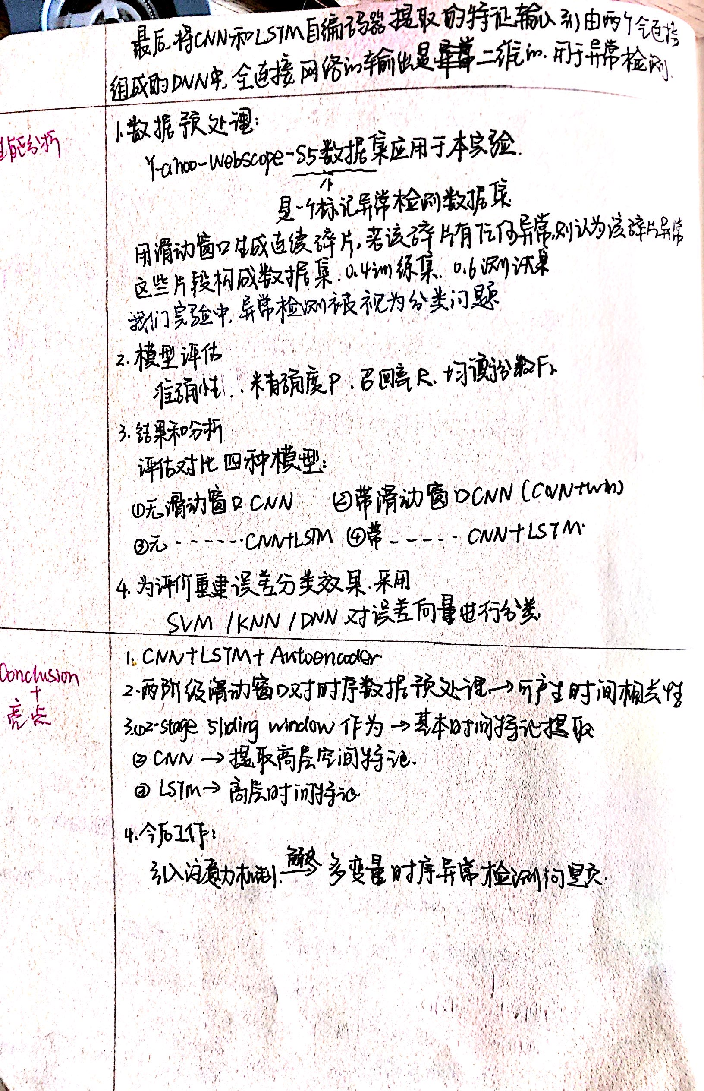 最后将CNN和LSTM自编码器提取的特征输入到由两个全连接
组成的DNN中,全连接网络的输出是二维的.用于异常检测.
性能分析
1.数据预处理:
Yahoo-Webscope-S5数据集应用于本实验.
是一个标记异常检测数据集
用滑动窗口生成连续碎片,若该碎片有任何异常,则认为该碎片异常
这些片段构成数据集.0.4训练集.0.6测试集
我们实验中,异常检测被视为分类问题
2.模型评估
准确性.精确度P.召回率R.均误分数F1
3.结果和分析
评估对比四种模型:
①无滑动窗口CNN ②带滑动窗口CNN(CNN+Win)
③无-------CNN+LSTM ④带------CNN+LSTM.
4.为评价重建误差分类效果.采用
SVM/KNN/DNN对误差向量进行分类
Conclusion
+
亮点
1.CNN+LSTM+Autoencoder
2.两阶级滑动窗口对时序数据预处理→可产生时间相关性
3.two-stage sliding window作为→基本时间特征提取
②CNN→提取高层空间特征.
③LSTM→高层时间特征
4.今后工作:
引入注意力机制.解决→多变量时序异常检测问题.